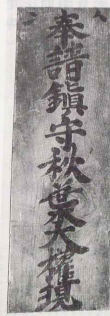 奉請鎮守秋葉大権現